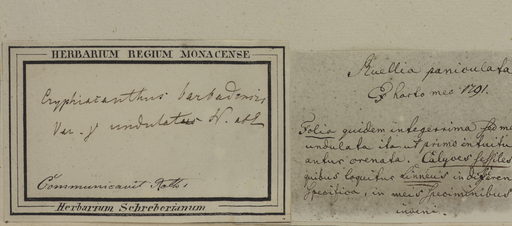 HERBARIUM REGIUM MONACENSE
Cryphiacanthus barbadensis
Var. γ undulatus N. ab E
Communicavit Roth.
Herbarium Schreberianum
Ruellia paniculata
horto meo 1791.
Folia quidem integerrima
undulata ita ut primo intuitu
crenata. Calyces sessiles
quibus loquitur Linneus in differen
specifica, in meis speciminibus
inveni.